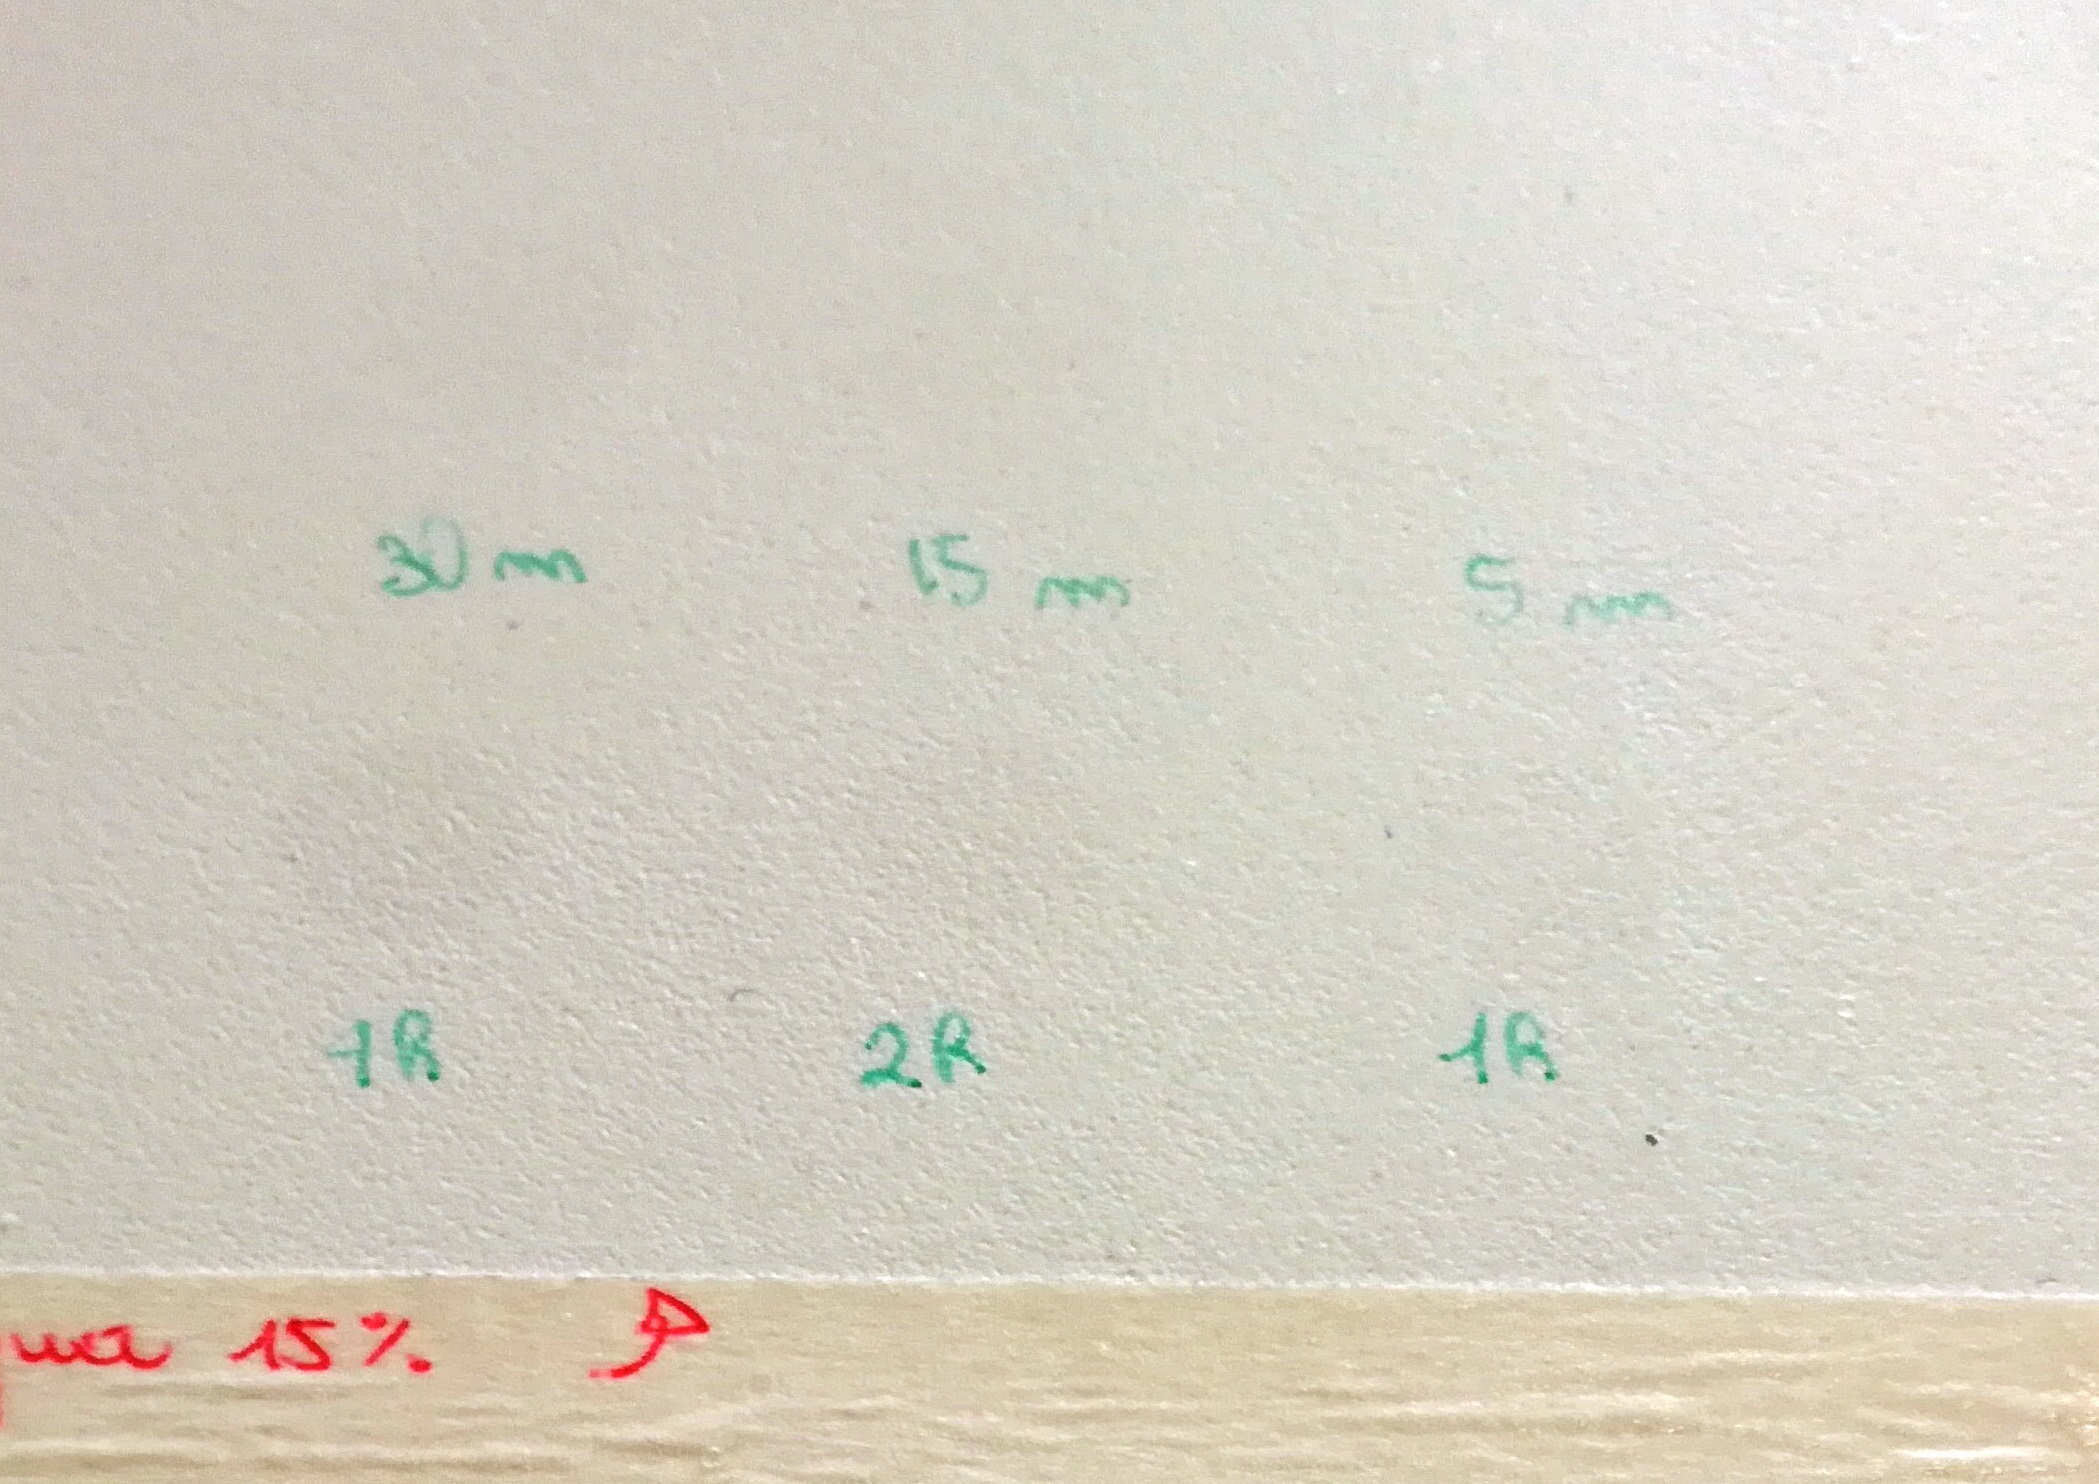 30 m 15 m 5 m
1R 2R 1R
15%